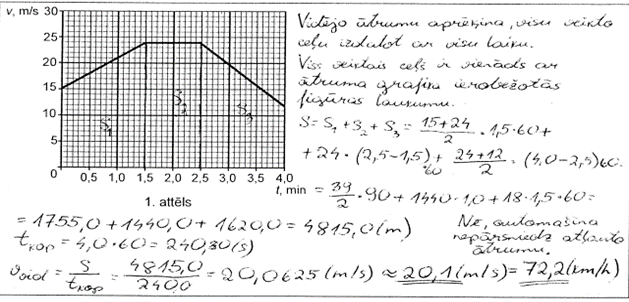 v, m/s
30
25
20
15
10
5
0
0,5 1,0 1,5 2,0 2,5 3,0 3,5 4,0
t, min
S₁
S₂
S₃
1. attēls
Vidējo ātrumu aprēķina, visu veikto
ceļu izdalot ar visu laiku.
Viss veiktais ceļš ir vienāds ar
ātruma grafika ierobežotās
figūras laukumu.
S = S₁ + S₂ + S₃ = (15+24)/2 · 1,5·60 +
+ 24 · (2,5-1,5)·60 + (24+12)/2 · (4,0-2,5)60 =
= 39/2 · 90 + 1440·1,0 + 18·1,5·60 =
= 1755,0 + 1440,0 + 1620,0 = 4815,0 (m)
t kop = 4,0·60 = 240,00 (s)
Nē, automašīna
nepārsniedz atļauto
ātrumu.
v vid = S/t kop = 4815,0/240,0 = 20,0625 (m/s) ≈ 20,1 (m/s) = 72,2 (km/h)